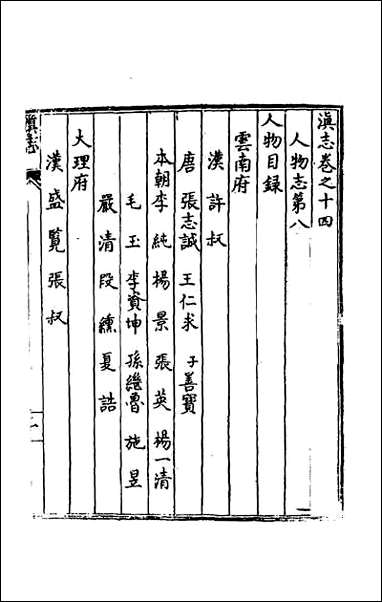 滇志卷之十四
人物志第八
人物目録
雲南府
漢 許叔
唐 張志誠 王仁求 子善寳
本朝李純 楊景 張英 楊一清
毛玉 李資坤 孫繼魯 施昱
嚴清 段纁 夏誥
大理府
漢 盛覧 張叔